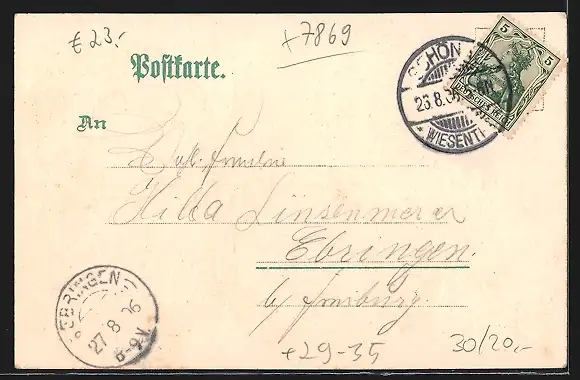 € 23.-
+7869
Postkarte.
SCHÖN
26.8.06
* WIESENT
5 5
An
Hilda Linsenmeier
Ebringen.
b/ Freiburg.
EBRINGEN
27 8 06
8-9V.
+29-35
30/20,-